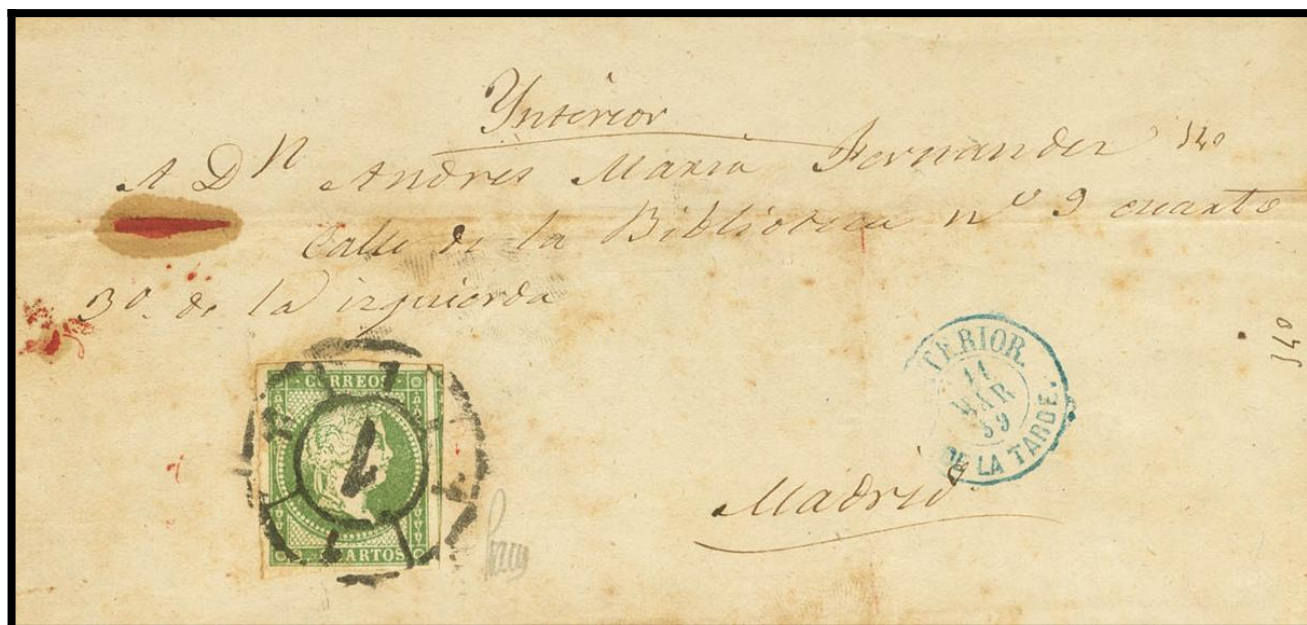 Ynterior
A Dⁿ Andres Maria Fernandez
Calle de la Biblioteca nº 9 cuarto
3º. de la izquierda
CORREOS
1
ARTOS
TERIOR.
11
MAR
59
DE LA TARDE.
Madrid